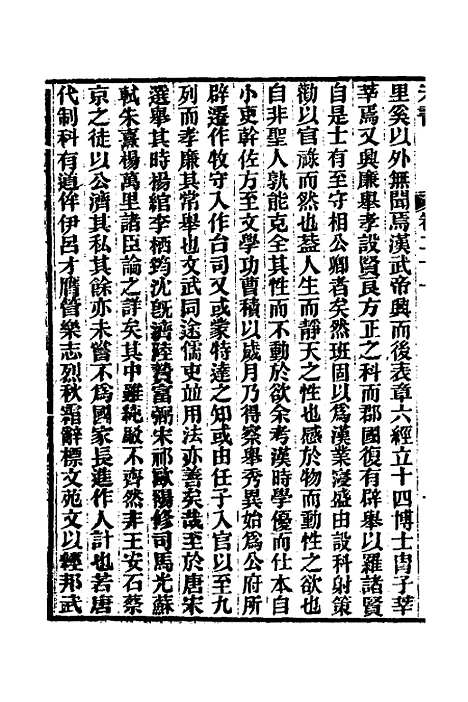 里矣以外無聞焉漢武帝興而後表章六經立十四博士冑子莘
莘焉又興廉舉孝設賢良方正之科而郡國復有辟舉以羅諸賢
自是士有至守相公卿者矣然班固以爲漢業寖盛由設科射策
勸以官祿而然也蓋人生而靜天之性也感於物而動性之欲也
自非聖人孰能克全其性而不動於欲余考漢時學優而仕本自
小吏幹佐方至文學功曹積以歲月乃得察舉秀異始爲公府所
辟遷作牧守入作台司又或蒙特達之知或由任子入官以至九
列而孝廉其常舉也文武同途儒吏並用法亦善矣哉至於唐宋
選舉其時楊綰李栖筠沈旣濟陸贄富弼宋祁歐陽修司馬光蘇
軾朱熹楊萬里諸臣論之詳矣其中雖純駁不齊然非王安石蔡
京之徒以公濟其私其餘亦未嘗不爲國家長進作人計也若唐
代制科有道侔伊呂才膺管樂志烈秋霜辭標文苑文以經邦武